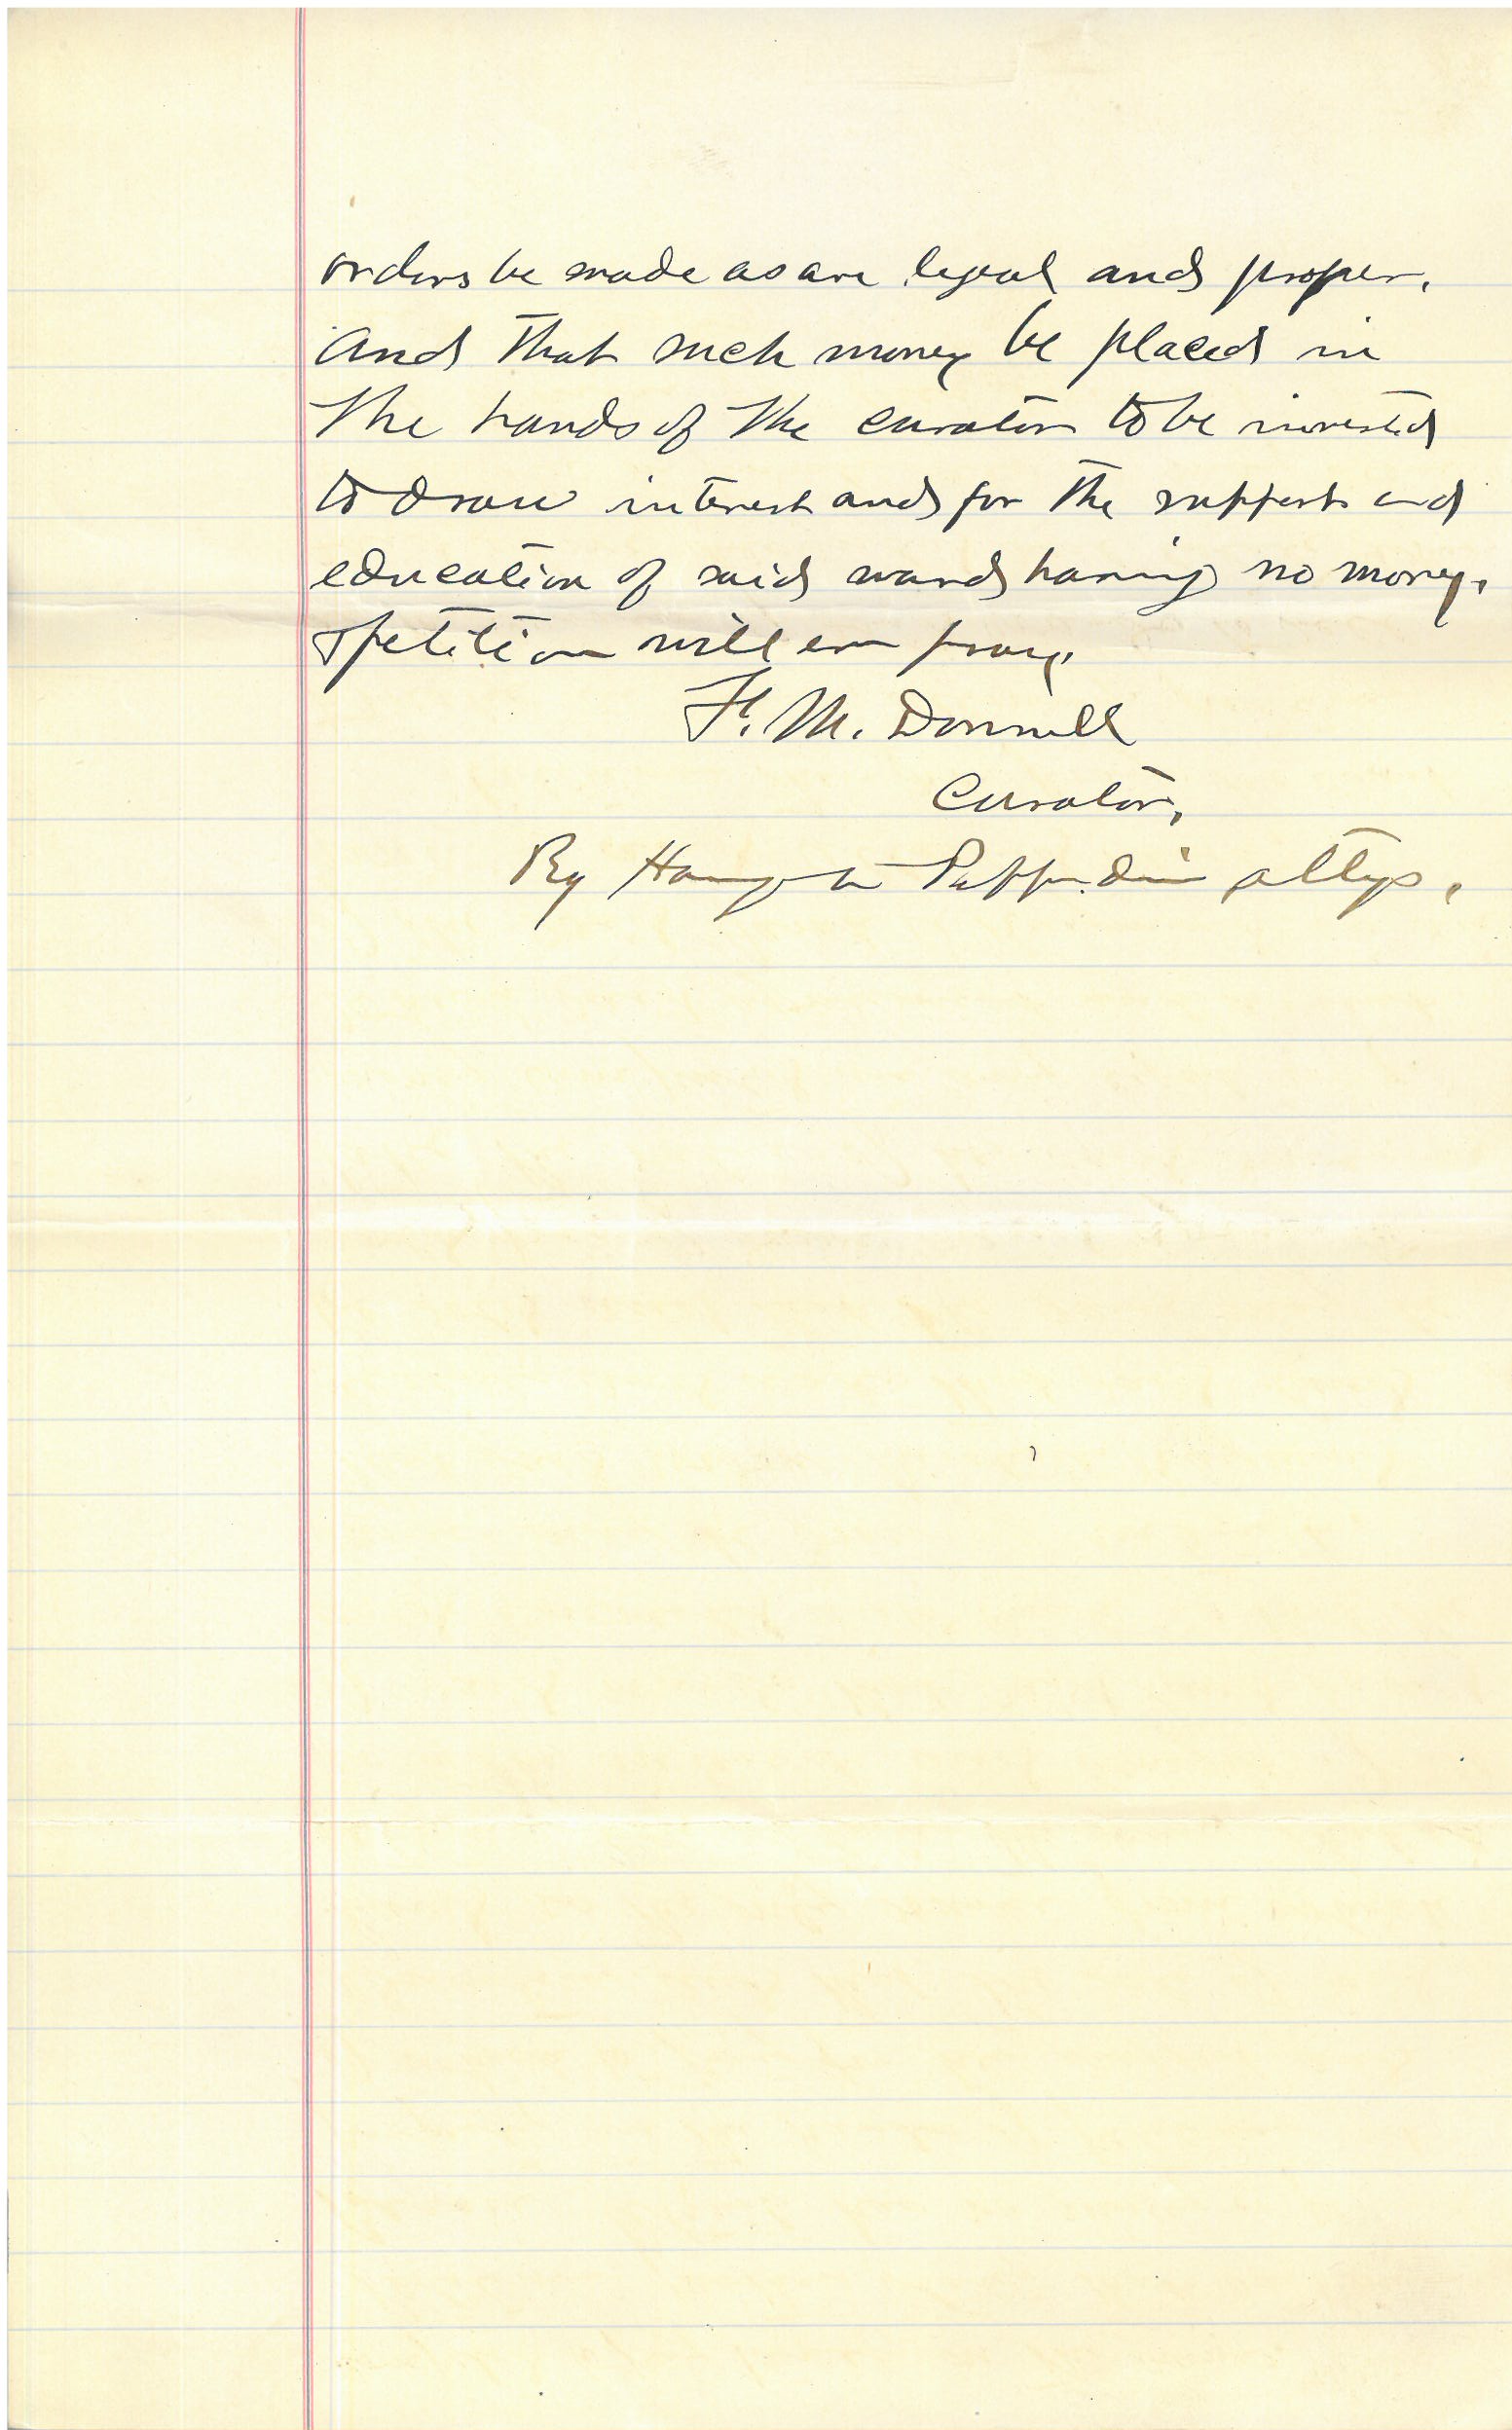 orders be made as are legal and proper.
And that such money be placed in
the hands of the curator to be invested
to draw interest and for the support and
education of said ward having no money.
petition will ever pray.
F. M. Donnell
Curator,
By attys.